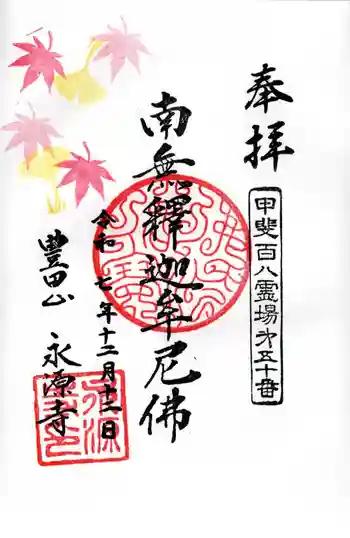 奉拝
甲斐百八霊場第五十番
南無釋迦牟尼佛
令和七年十二月十二日
豊田山 永源寺